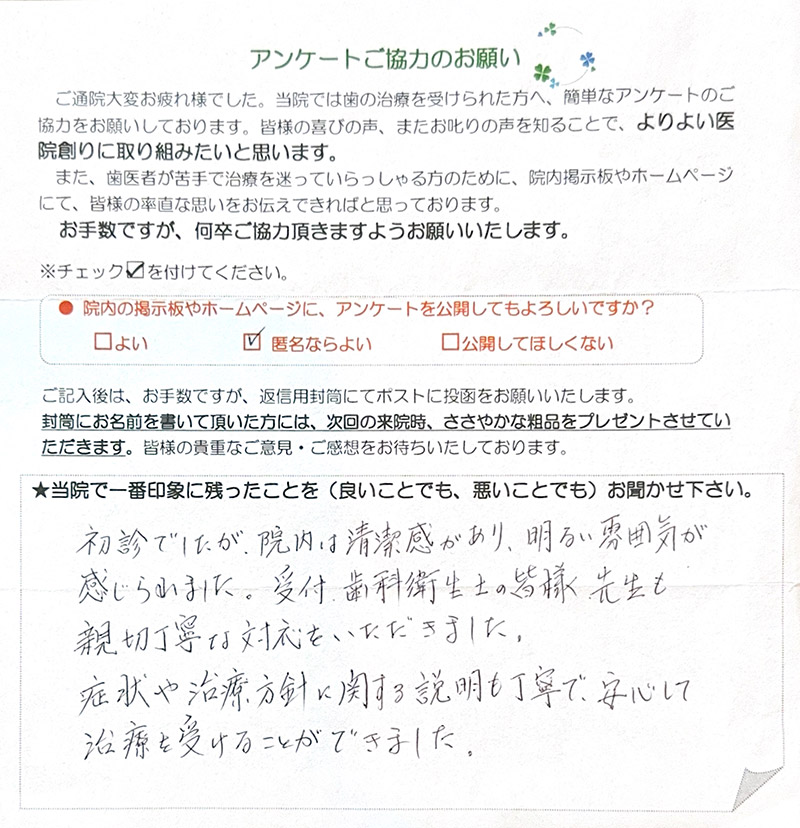 アンケートご協力のお願い
ご通院大変お疲れ様でした。当院では歯の治療を受けられた方へ、簡単なアンケートのご
協力をお願いしております。皆様の喜びの声、またお叱りの声を知ることで、よりよい医
院創りに取り組みたいと思います。
また、歯医者が苦手で治療を迷っていらっしゃる方のために、院内掲示板やホームページ
にて、皆様の率直な思いをお伝えできればと思っております。
お手数ですが、何卒ご協力頂きますようお願いいたします。
※チェック☑を付けてください。
● 院内の掲示板やホームページに、アンケートを公開してもよろしいですか？
□よい ☑匿名ならよい □公開してほしくない
ご記入後は、お手数ですが、返信用封筒にてポストに投函をお願いいたします。
封筒にお名前を書いて頂いた方には、次回の来院時、ささやかな粗品をプレゼントさせてい
ただきます。皆様の貴重なご意見・ご感想をお待ちいたしております。
★当院で一番印象に残ったことを（良いことでも、悪いことでも）お聞かせ下さい。
初診でしたが、院内は清潔感があり、明るい雰囲気が
感じられました。受付、歯科衛生士の皆様、先生も
親切丁寧な対応をいただきました。
症状や治療方針に関する説明も丁寧で、安心して
治療を受けることができました。